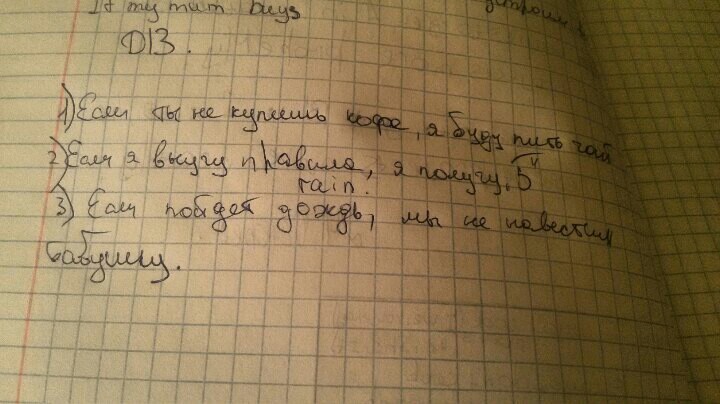 If my mum buys
D/З.
1) Если ты не купишь кофе, я буду пить чай
2) Если я выучу правила, я получу "5"
rain.
3) Если пойдет дождь, мы не навестим
бабушку.